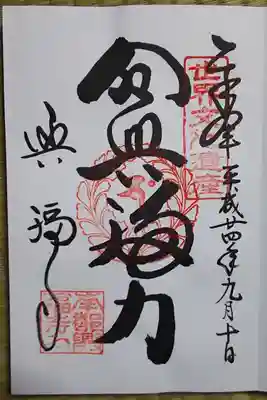 奉拝 平成廿四年九月十日
世界文化遺産
令興福力
興福寺